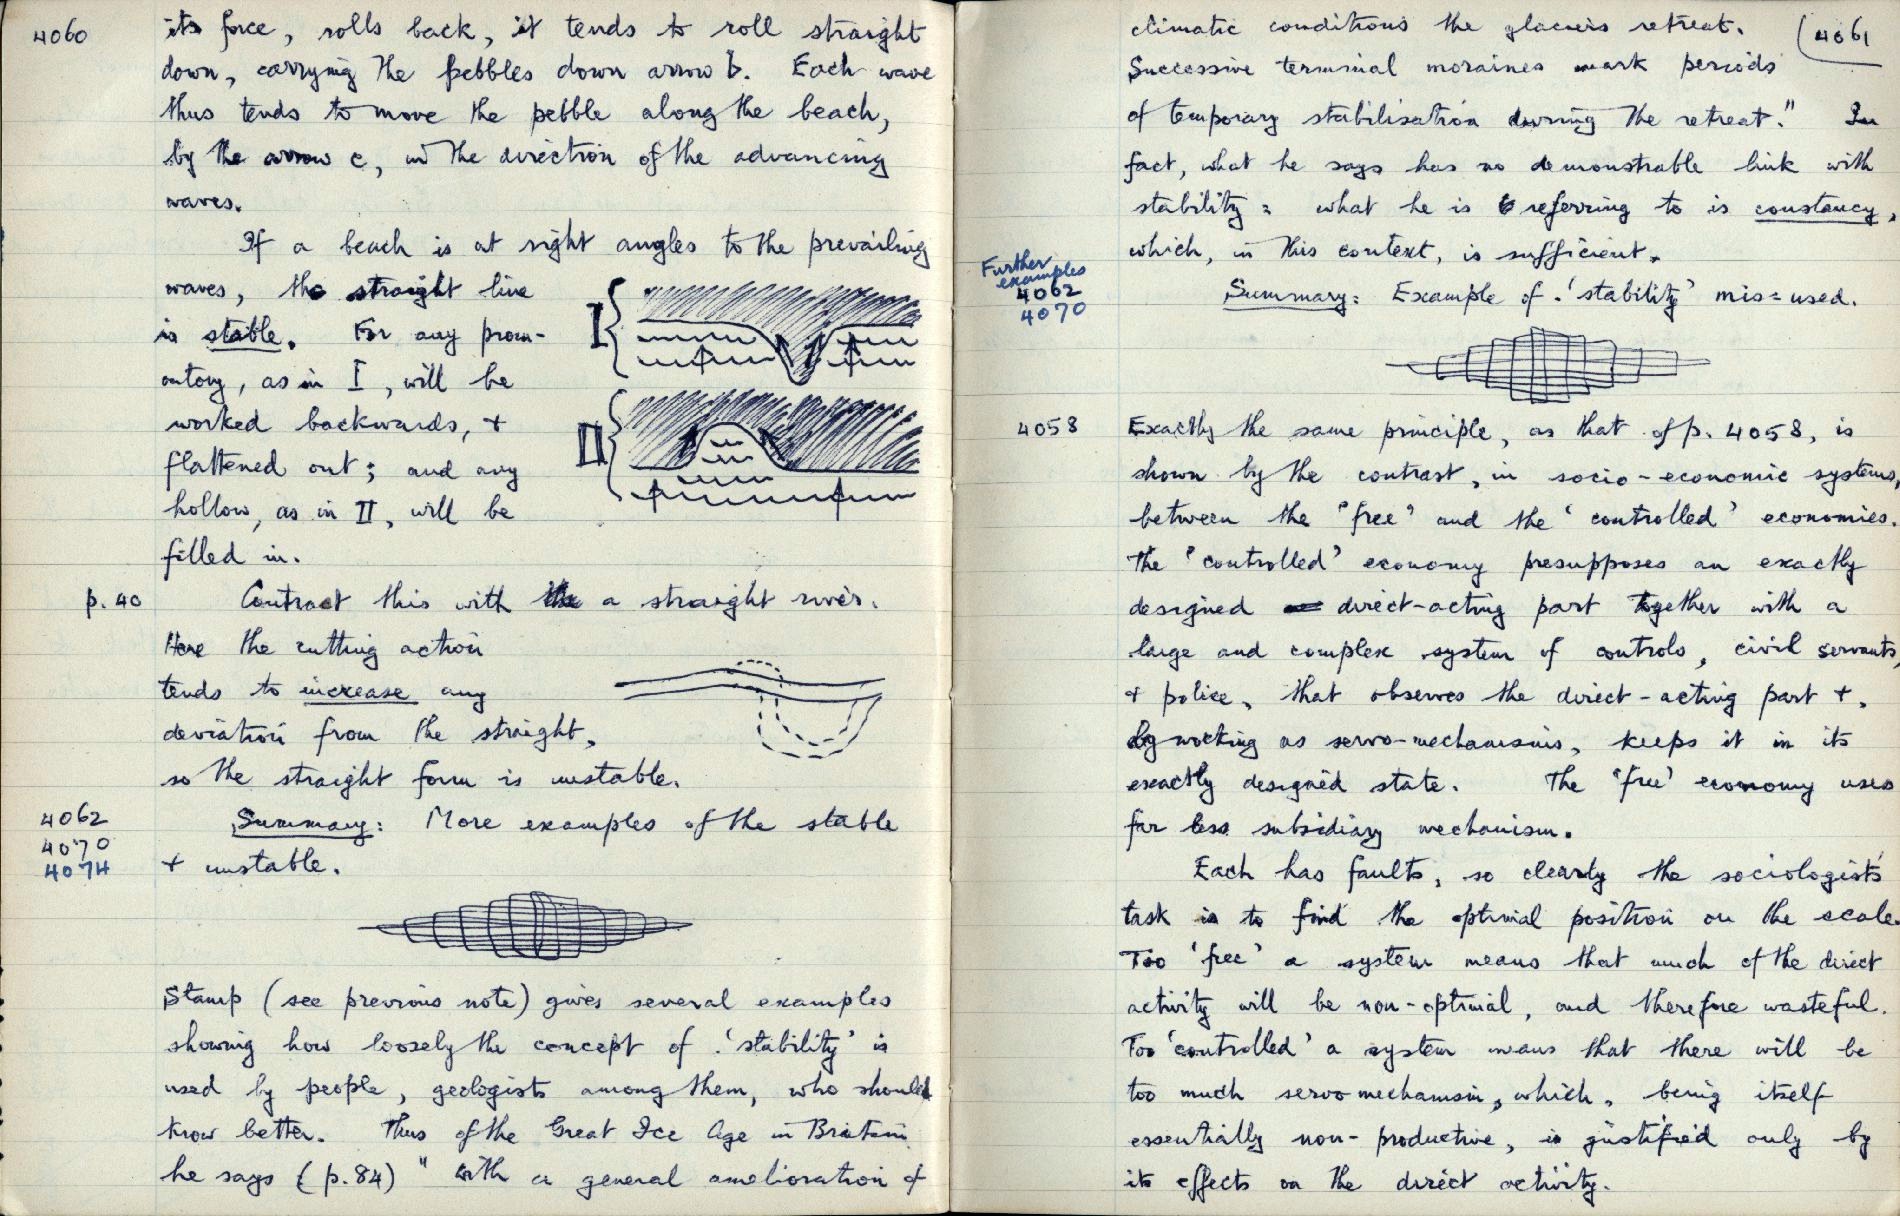 4060
its force, rolls back, it tends to roll straight
down, carrying the pebbles down arrow b. Each wave
thus tends to move the pebble along the beach,
by the arrow c, in the direction of the advancing
waves.
If a beach is at right angles to the prevailing
waves, the straight line
is stable. For any prom-
ontory, as in I, will be
worked backwards, +
flattened out; and any
hollow, as in II, will be
filled in.
I
II
p. 40
Contrast this with a straight river.
Here the cutting action
tends to increase any
deviation from the straight,
so the straight form is unstable.
4062
4070
4074
Summary: More examples of the stable
+ unstable.
Stamp (see previous note) gives several examples
showing how loosely the concept of 'stability' is
used by people, geologists among them, who should
know better. Thus of the Great Ice Age in Britain
he says (p.84) "with a general amelioration of
4061
climatic conditions the glaciers retreat.
Successive terminal moraines mark periods
of temporary stabilisation during the retreat." In
fact, what he says has no demonstrable link with
stability: what he is referring to is constancy,
which, in this context, is sufficient.
Further
examples
4062
4070
Summary: Example of 'stability' mis-used.
4058
Exactly the same principle, as that of p. 4058, is
shown by the contrast, in socio-economic systems,
between the 'free' and the 'controlled' economies.
The 'controlled' economy presupposes an exactly
designed direct-acting part together with a
large and complex system of controls, civil servants,
+ police, that observes the direct-acting part +,
by working as servo-mechanisms, keeps it in its
exactly designed state. The 'free' economy uses
far less subsidiary mechanism.
Each has faults, so clearly the sociologists'
task is to find the optimal position on the scale.
Too 'free' a system means that much of the direct
activity will be non-optimal, and therefore wasteful.
Too 'controlled' a system means that there will be
too much servo mechanism, which, being itself
essentially non-productive, is justified only by
its effects on the direct activity.